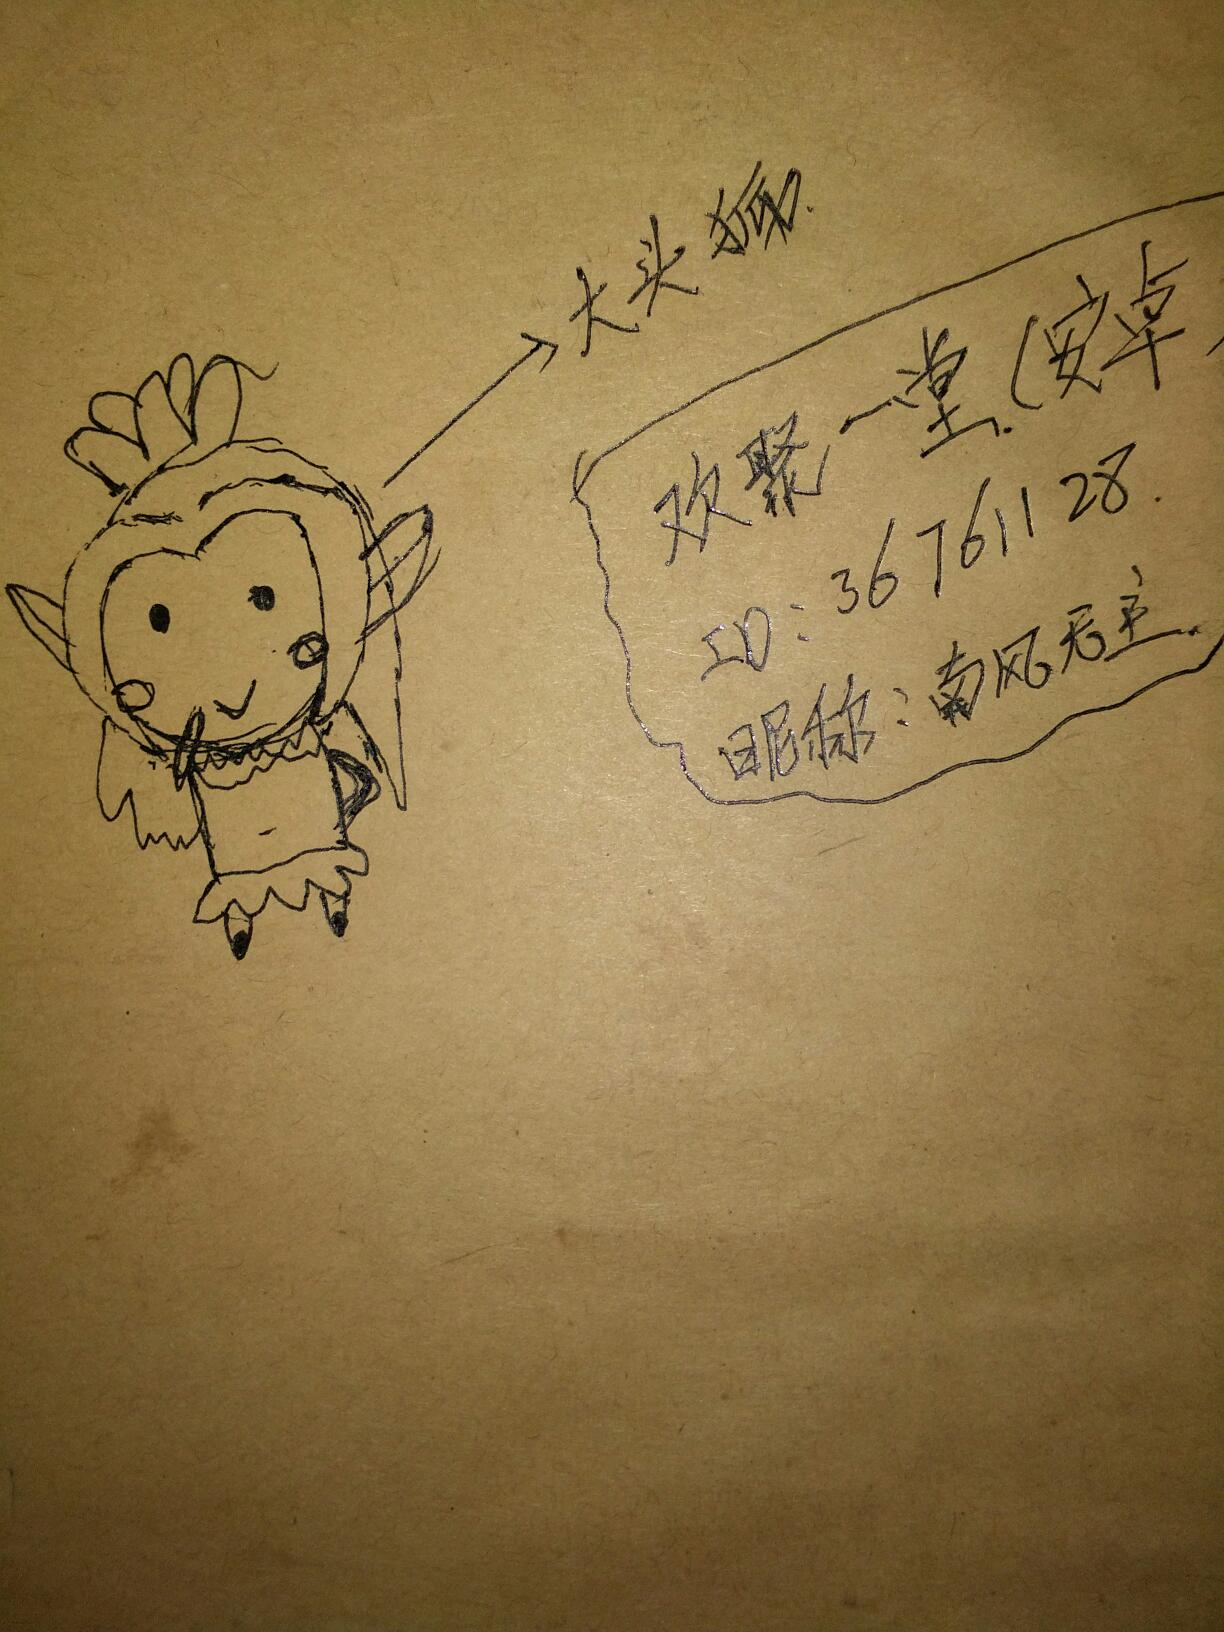 大头狐.
欢聚一堂.(安卓)
ID:36761128.
昵称:南风无主.